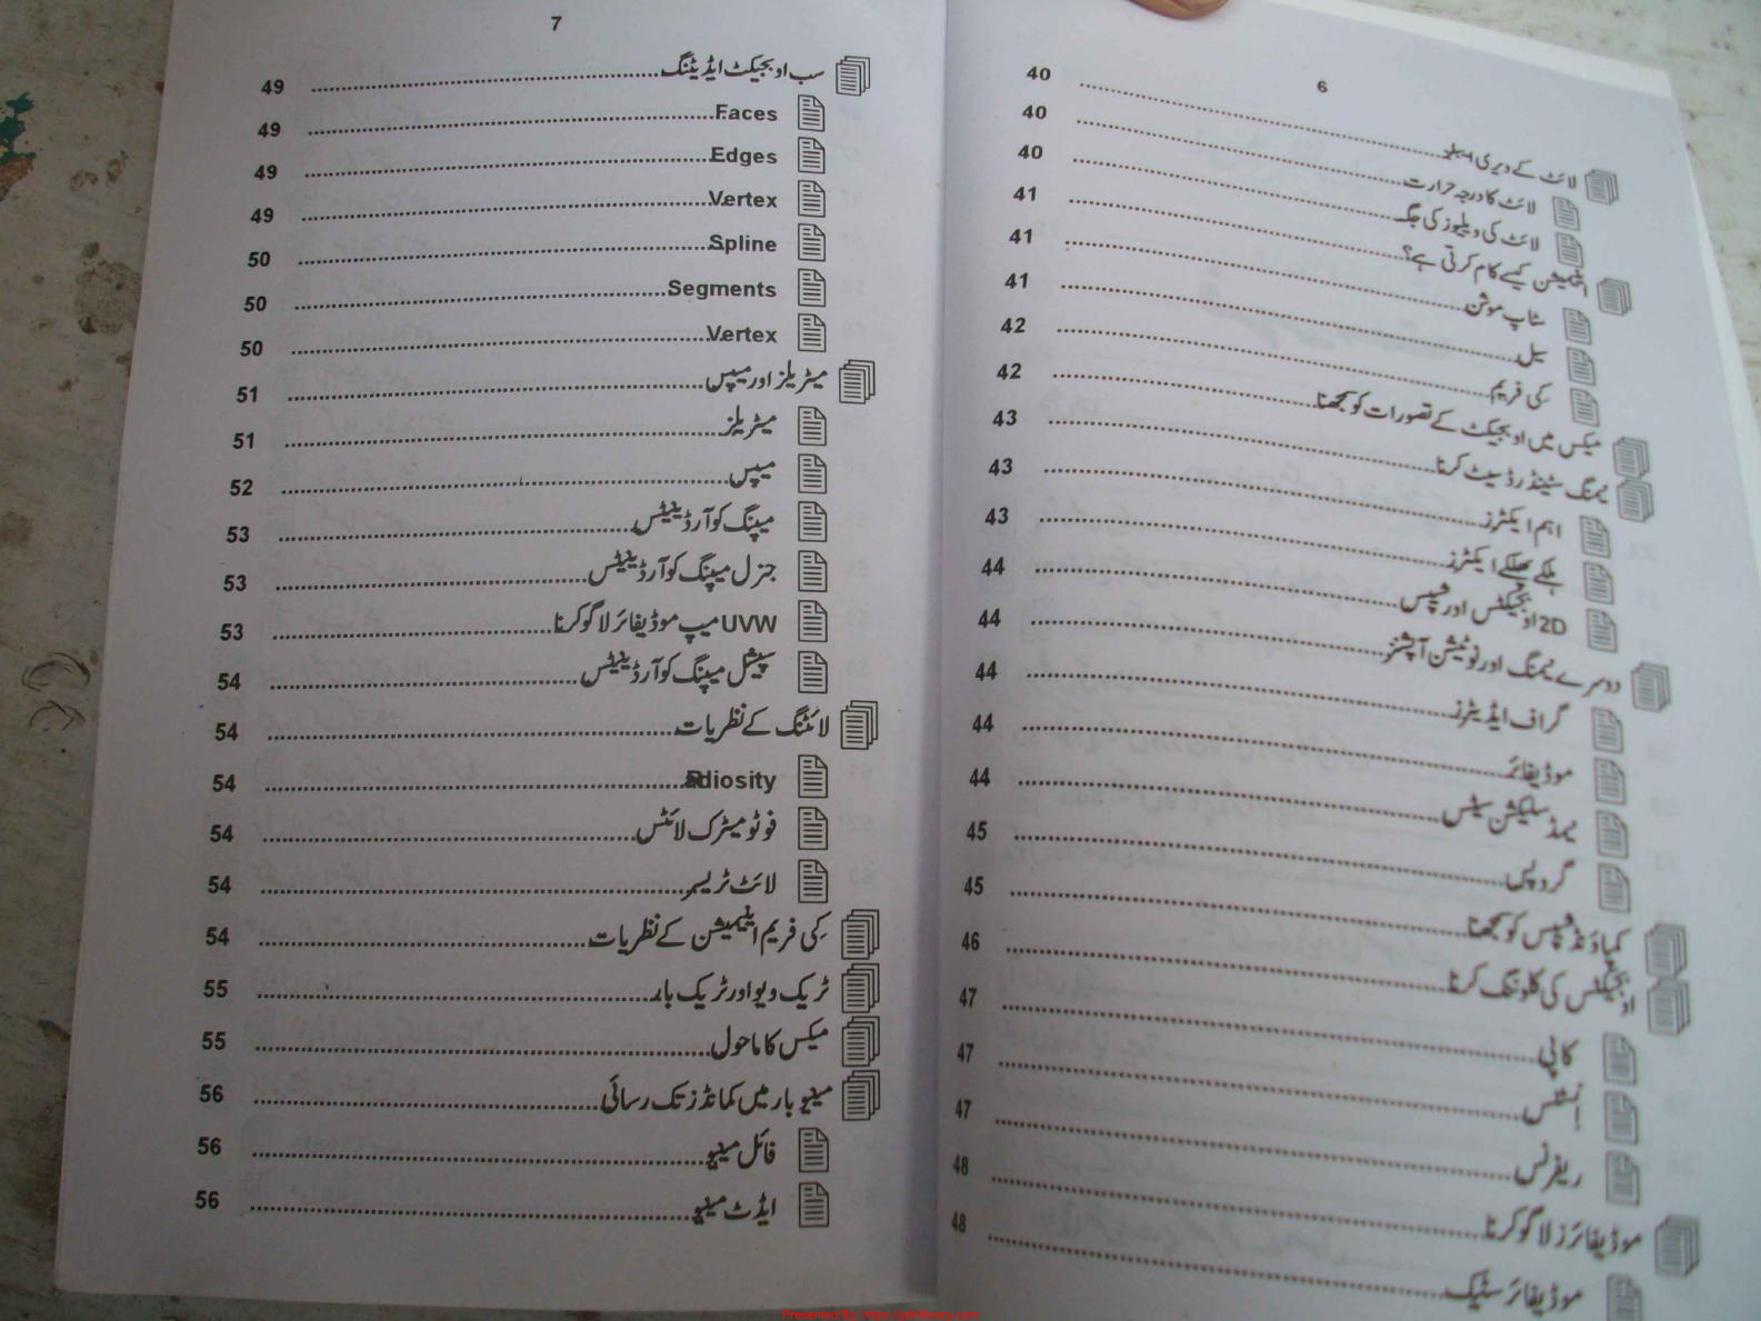 6
لائٹ کے ویری ایبلز 40
لائٹ کا درجہ حرارت 40
لائٹ کی ویلیوز کی جگہ 40
اینیمیشن کیسے کام کرتی ہے؟ 41
سٹاپ موشن 41
سیل 41
کی فریم 42
میکس میں اوبجیکٹ کے تصورات کو سمجھنا 42
نیمنگ سٹینڈرڈ سیٹ کرنا 43
اہم ایکٹرز 43
ہلکے پھلکے ایکٹرز 43
2D اوبجیکٹس اور شیپس 44
دوسرے نیمنگ اور نوٹیشن آپشنز 44
گراف ایڈیٹرز 44
موڈیفائر 44
نیمڈ سلیکشن سیٹس 44
گروپس 45
کمپاؤنڈ شیپس کو سمجھنا 45
اوبجیکٹس کی کلوننگ کرنا 46
کاپی 47
انسٹنس 47
ریفرنس 47
موڈیفائرز لاگو کرنا 48
موڈیفائر سٹیک 48
7
سب اوبجیکٹ ایڈیٹنگ 49
Faces 49
Edges 49
Vertex 49
Spline 50
Segments 50
Vertex 50
میٹریلز اور میپس 51
میٹریلز 51
میپس 52
میپنگ کوآرڈینیٹس 53
جنرل میپنگ کوآرڈینیٹس 53
UVW میپ موڈیفائر لاگو کرنا 53
سپیشل میپنگ کوآرڈینیٹس 54
لائٹنگ کے نظریات 54
Radiosity 54
فوٹو میٹرک لائٹس 54
لائٹ ٹریسر 54
کی فریم اینیمیشن کے نظریات 54
ٹریک ویو اور ٹریک بار 55
میکس کا ماحول 55
مینیو بار میں کمانڈز تک رسائی 56
فائل مینیو 56
ایڈٹ مینیو 56